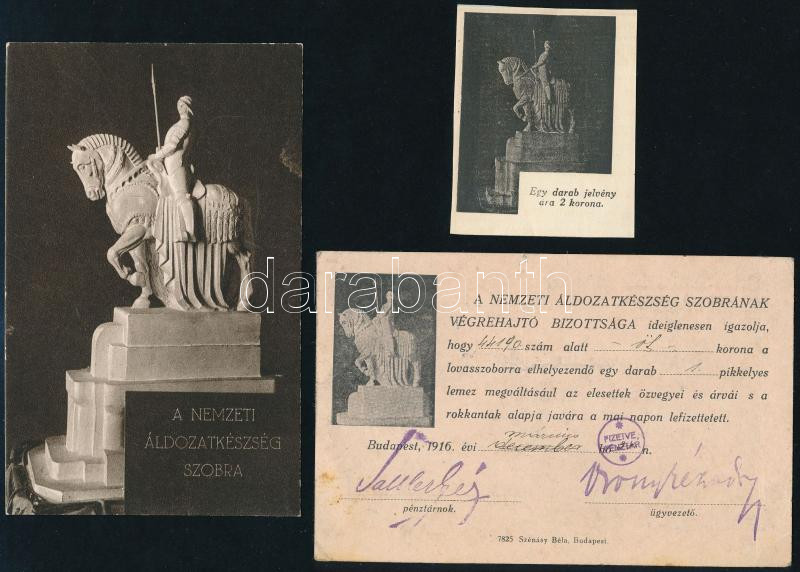 A NEMZETI
ÁLDOZATKÉSZSÉG
SZOBRA
Egy darab jelvény
ára 2 korona.
darabanth
A NEMZETI ÁLDOZATKÉSZSÉG SZOBRÁNAK
VÉGREHAJTÓ BIZOTTSÁGA ideiglenesen igazolja,
hogy 44190 szám alatt - öt - korona a
lovasszoborra elhelyezendő egy darab 1 pikkelyes
lemez megváltásául az elesettek özvegyei és árvái s a
rokkantak alapja javára a mai napon lefizettetett.
március
Budapest, 1916. évi december n.
FIZETVE,
PÉNZTÁR
pénztárnok.
ügyvezető.
7825 Szénásy Béla, Budapest.